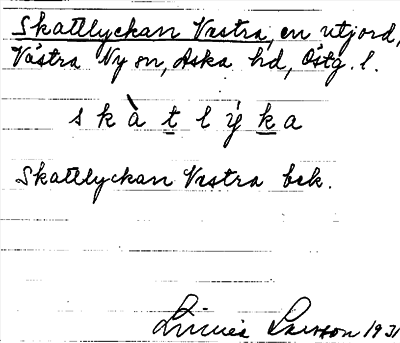 Skattlyckan Västra, en utjord,
Västra Ny sn, Aska hd, Östg. l.
s k à t l ý k a
Skattlyckan Västra bek.
Linnéa Larsson 1931